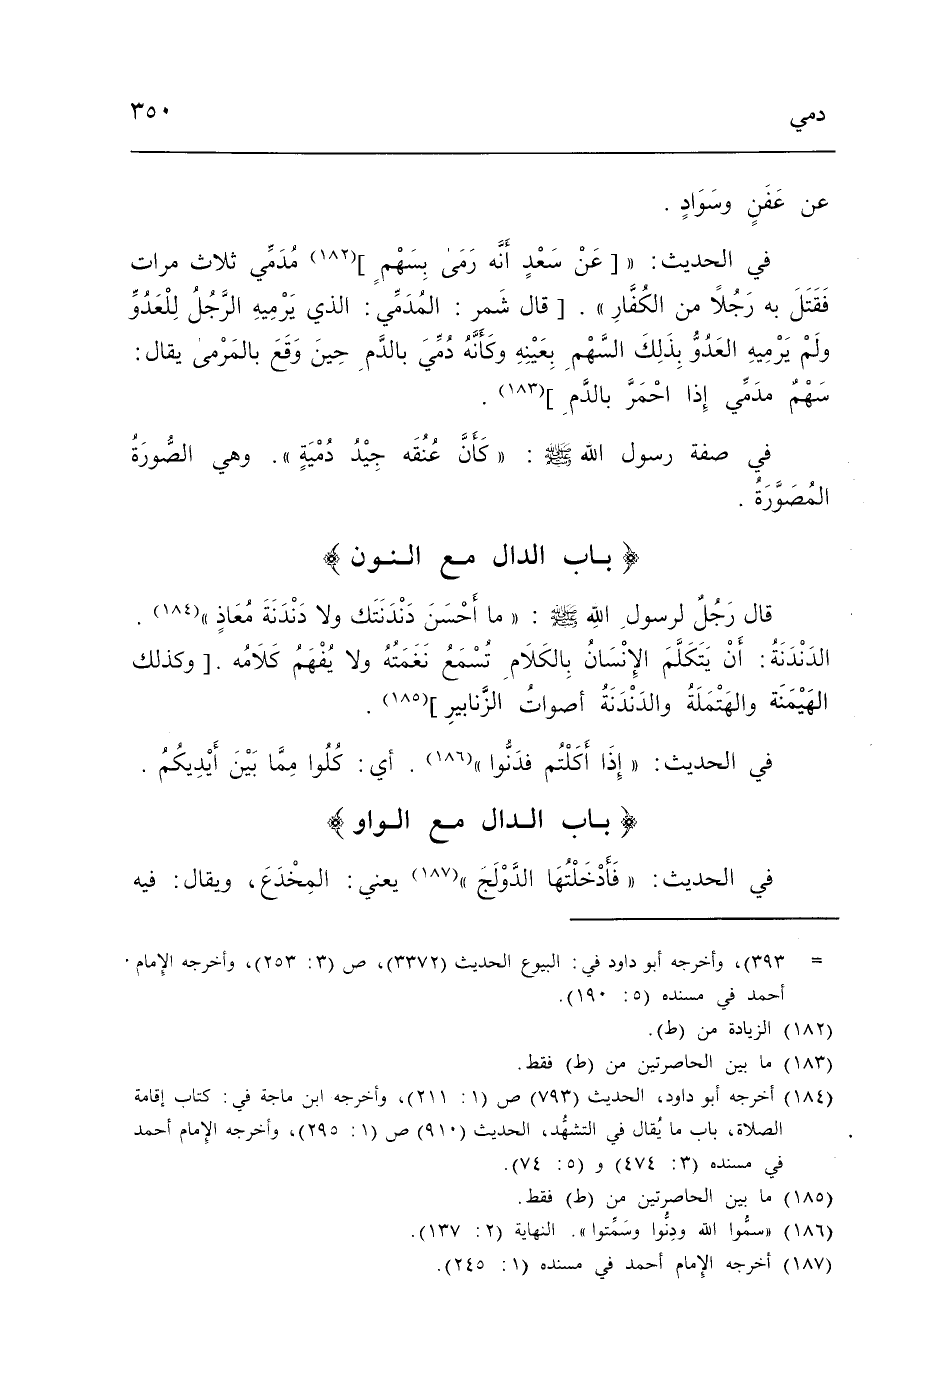 دمي ٣٥٠
عن عَفَنٍ وسَوَادٍ .
في الحديث : « [ عَنْ سَعْدٍ أَنَّه رَمَىٰ بِسَهْمٍ ](١٨٢) مُدَمِّي ثلاث مرات
فَقَتَلَ به رَجُلًا من الكُفَّارِ » . [ قال شَمر : المُدَمِّي : الذي يَرْمِيهِ الرَّجُلُ لِلْعَدُوِّ
ولَمْ يَرْمِيهِ العَدُوُّ بِذَلِكَ السَّهْمِ بِعَيْنِهِ وكَأَنَّهُ دُمِّيَ بالدَّمِ حِينَ وَقَعَ بالمَرْمىٰ يقال :
سَهْمٌ مدَمِّي إِذا احْمَرَّ بالدَّمِ ](١٨٣) .
في صفة رسول الله ﷺ : « كَأَنَّ عُنُقَه جِيْدُ دُمْيَةٍ » . وهي الصُّورَةُ
المُصَوَّرَةُ .
﴿ بـاب الدال مـع الـنـون ﴾
قال رَجُلٌ لرسولِ اللهِ ﷺ : « ما أَحْسَنَ دَنْدَنَتَك ولا دَنْدَنَةَ مُعَاذٍ »(١٨٤) .
الدَنْدَنَةُ : أَنْ يَتَكَلَّمَ الإِنْسَانُ بِالكَلَامِ تُسْمَعُ نَغَمَتُهُ ولا يُفْهَمُ كَلَامُه . [ وكذلك
الهَيْمَنَة والهَتْمَلَةُ والدَنْدَنَةُ أصواتُ الزَّنابيرِ ](١٨٥) .
في الحديث : « إِذَا أَكَلْتُم فدَنُّوا »(١٨٦) . أي : كُلُوا مِمَّا بَيْنَ أَيْدِيكُمُ .
﴿ بـاب الـدال مـع الـواو ﴾
في الحديث : « فَأَدْخَلْتُهَا الدَّوْلَجَ »(١٨٧) يعني : المِخْدَعَ ، ويقال : فيه
= ٣٩٣)، وأخرجه أبو داود في : البيوع الحديث (٣٣٧٢)، ص (٣: ٢٥٣)، وأخرجه الإمام
أحمد في مسنده (٥: ١٩٠).
(١٨٢) الزيادة من (ط).
(١٨٣) ما بين الحاصرتين من (ط) فقط.
(١٨٤) أخرجه أبو داود، الحديث (٧٩٣) ص (١: ٢١١)، وأخرجه ابن ماجة في : كتاب إقامة
الصلاة، باب ما يُقال في التشهُّد، الحديث (٩١٠) ص (١: ٢٩٥)، وأخرجه الإمام أحمد
في مسنده (٣: ٤٧٤) و (٥: ٧٤).
(١٨٥) ما بين الحاصرتين من (ط) فقط.
(١٨٦) «سمُّوا الله ودِنُّوا وسَمِّتوا ». النهاية (٢: ١٣٧).
(١٨٧) أخرجه الإمام أحمد في مسنده (١: ٢٤٥).